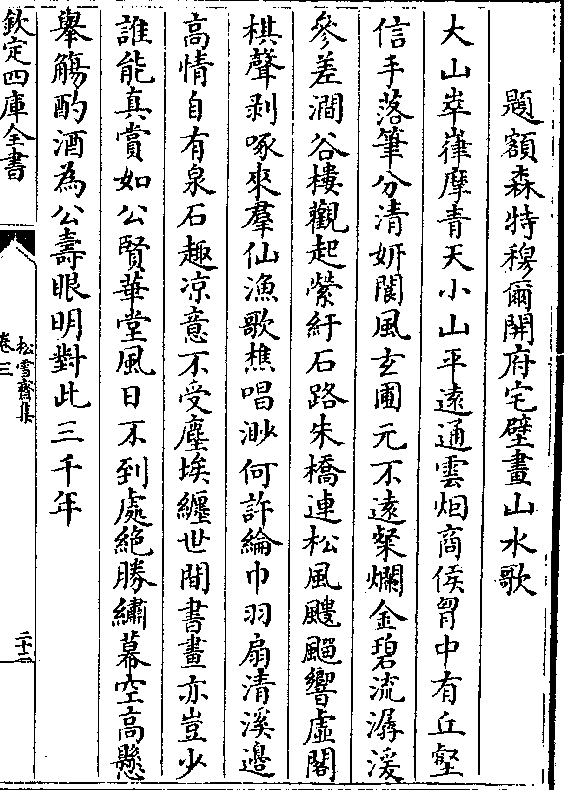 題額森特穆爾開府宅壁畫山水歌
大山崒嵂摩青天小山平遠通雲烟商侯胷中有丘壑
信手落筆分清妍閬風玄圃元不遠粲爛金碧流潺湲
參差澗谷樓觀起縈紆石路朱橋連松風颼飀響虛閣
棋聲剥啄來羣仙漁歌樵唱渺何許綸巾羽扇清溪邊
高情自有泉石趣凉意不受塵埃纏世間書畫亦豈少
誰能真賞如公賢華堂風日不到處絶勝繡幕空高懸
舉觴酌酒為公壽眼明對此三千年
欽定四庫全書
松雪齋集
卷三
二十二